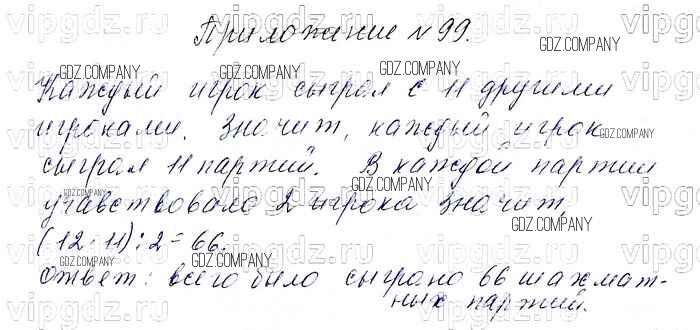 Приложение №99.
Каждый игрок сыграл с 11 другими
игроками. Значит, каждый игрок
сыграл 11 партий. В каждой партии
учавствовало 2 игрока значит,
(12·11):2=66.
Ответ: всего было сыграно 66 шахмат-
ных партий.
GDZ.COMPANY
GDZ.COMPANY
GDZ.COMPANY
GDZ.COMPANY
GDZ.COMPANY
GDZ.COMPANY
GDZ.COMPANY
GDZ.COMPANY
GDZ.COMPANY
GDZ.COMPANY
GDZ.COMPANY
vipgdz.ru